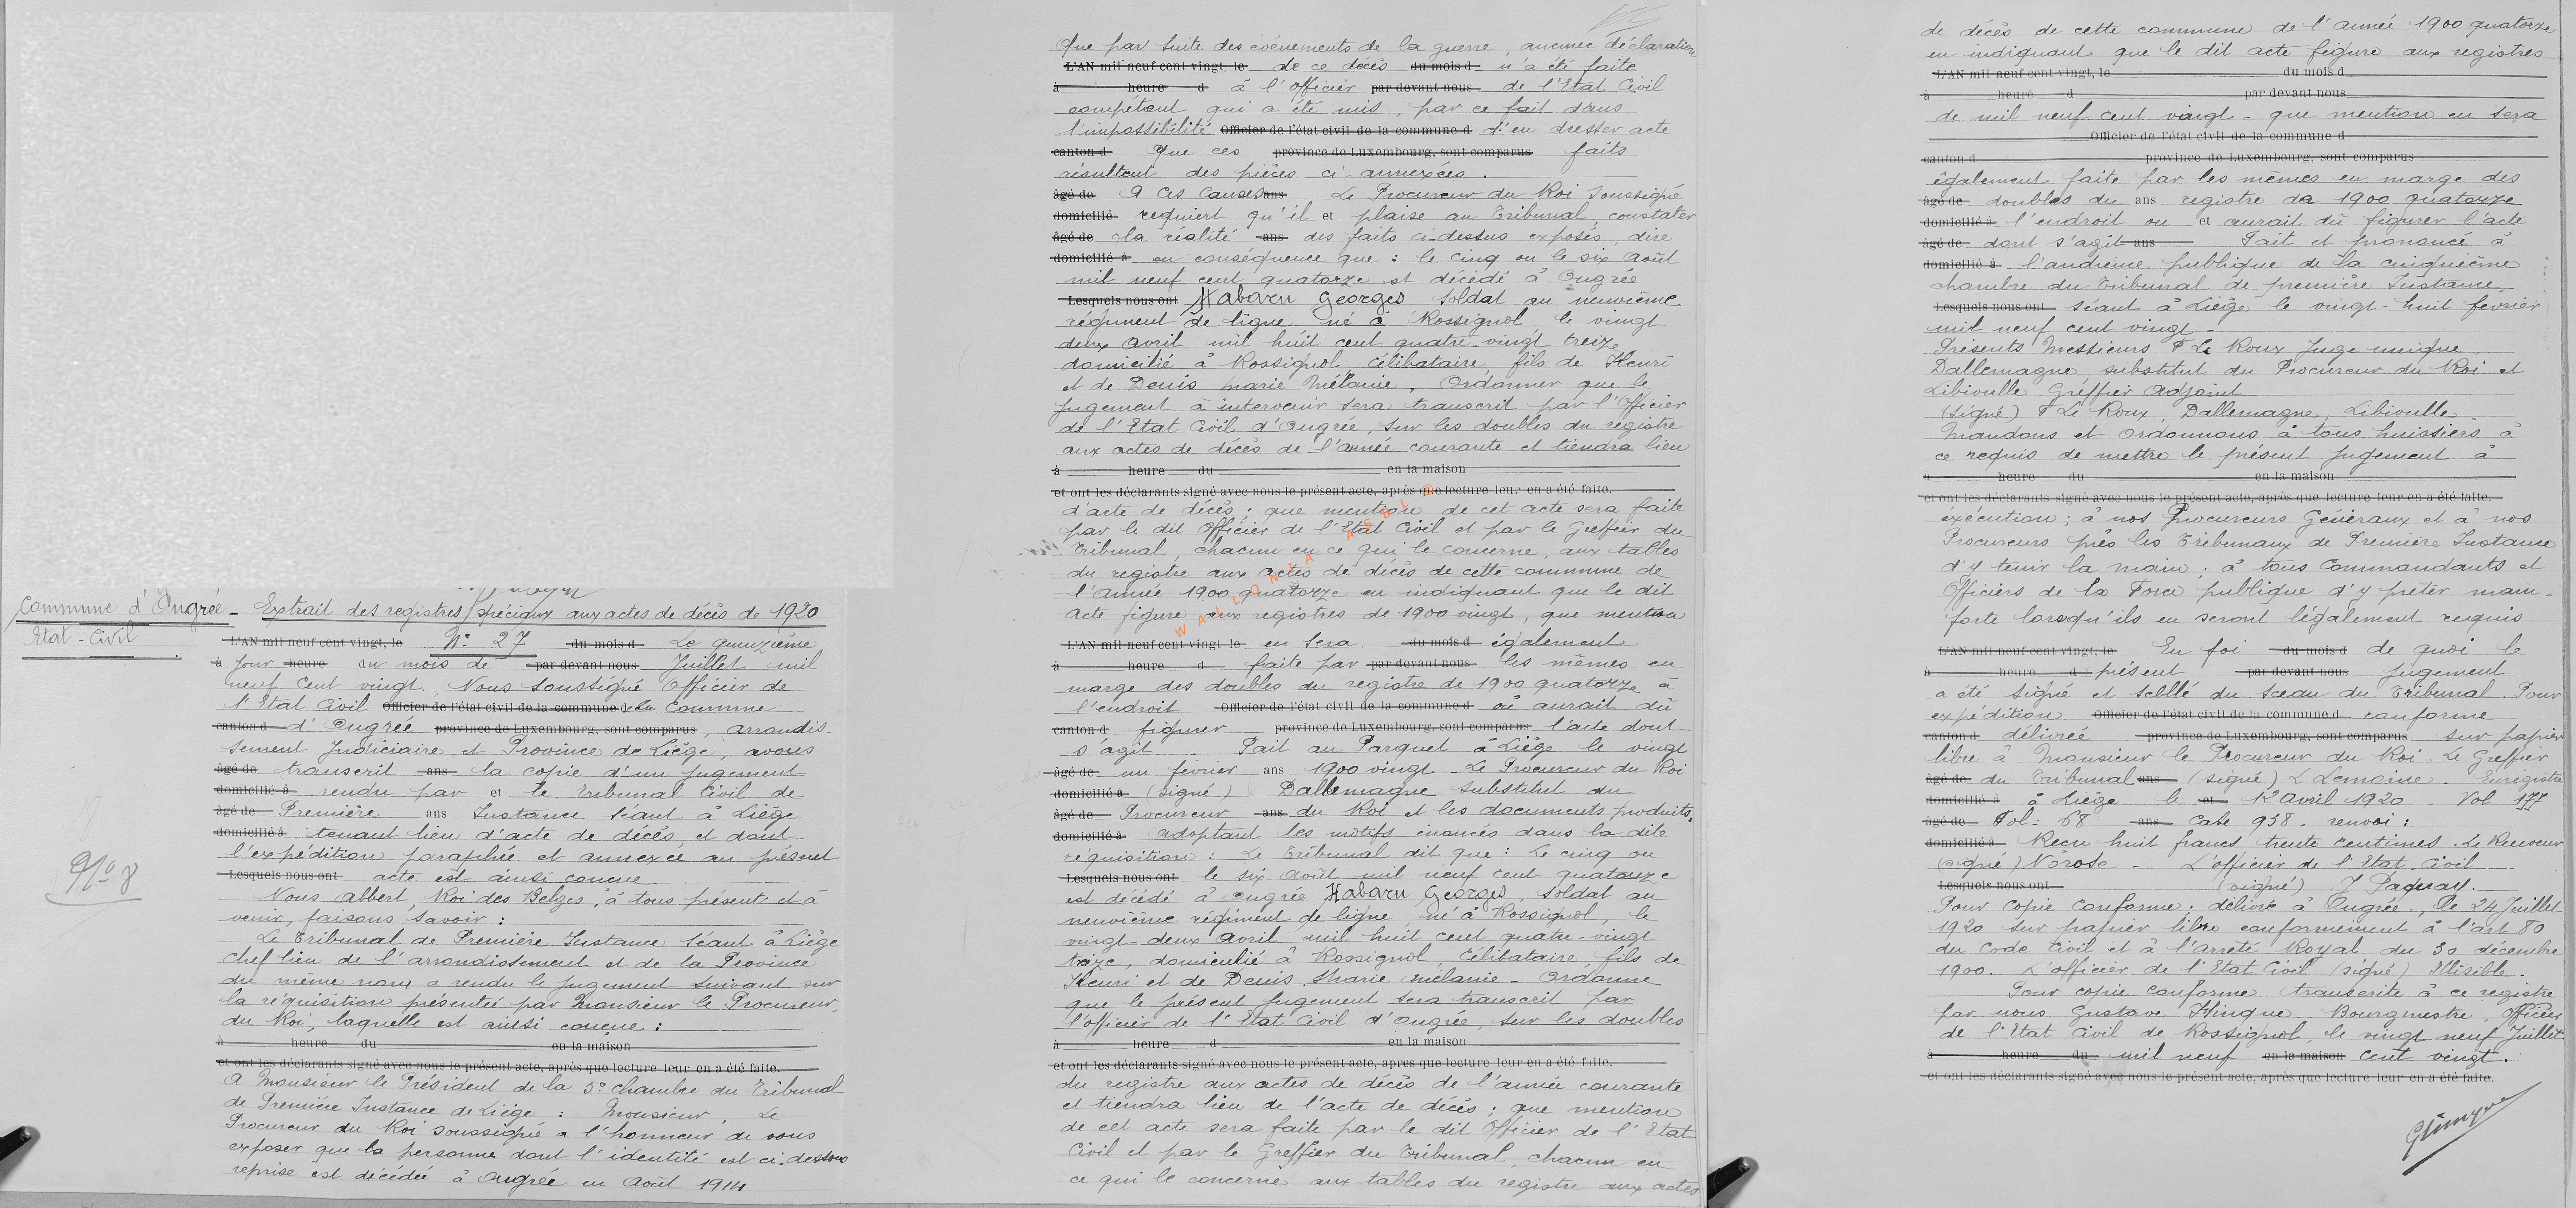 Commune d'Ougrée - Extrait des registres spéciaux aux actes de décès de 1920
Etat-Civil
L'AN mil neuf cent vingt, le N° 27 du mois d Le quinzième
à jour heure du mois de par devant nous Juillet mil
neuf cent vingt. Nous soussigné Officier de
l'Etat Civil Officier de l'état civil de la commune de la Commune
canton d d'Ougrée province de Luxembourg, sont comparus, arrondis-
sement Judiciaire et Province de Liège, avons
âgé de transcrit ans la copie d'un jugement
domicilié à rendu par et le Tribunal Civil de
âgé de Première ans Instance séant à Liège
domicilié à tenant lieu d'acte de décès et dont
l'expédition paraphée et annexée au présent
Lesquels nous ont acte est ainsi conçue
N° 8
Nous Albert, Roi des Belges, à tous présents et à
venir, faisons savoir :
Le Tribunal de Première Instance séant à Liège
chef lieu de l'arrondissement et de la Province
du même nom a rendu le jugement suivant sur
la réquisition présentée par Monsieur le Procureur,
du Roi, laquelle est ainsi conçue :
à heure du en la maison
et ont les déclarants signé avec nous le présent acte, après que lecture leur en a été faite.
A Monsieur le Président de la 5e chambre du Tribunal
de Première Instance de Liège : Monsieur, Le
Procureur du Roi soussigné a l'honneur de vous
exposer que la personne dont l'identité est ci-dessous
reprise est décédée à Ougrée en Août 1914
Que par suite des événements de la guerre, aucune déclaration
L'AN mil neuf cent vingt, le de ce décès du mois d n'a été faite
à heure d à l'officier par devant nous de l'Etat Civil
compétent qui a été mis, par ce fait dans
l'impossibilité Officier de l'état civil de la commune d d'en dresser acte
canton d Que ces province de Luxembourg, sont comparus faits
résultent des pièces ci-annexées.
âgé de A ces causes ans Le Procureur du Roi soussigné
domicilié requiert qu'il et plaise au Tribunal constater
âgé de la réalité ans des faits ci-dessus exposés, dire
domicilié à en conséquence que : le cinq ou le six Août
mil neuf cent quatorze est décédé à Ougrée
Lesquels nous ont Habaru Georges soldat au neuvième
régiment de ligne né à Rossignol le vingt
deux Avril mil huit cent quatre-vingt treize
domicilié à Rossignol, célibataire, fils de Henri
et de Denis Marie Mélanie, Ordonner que le
jugement à intervenir sera transcrit par l'Officier
de l'Etat Civil d'Ougrée, sur les doubles du registre
aux actes de décès de l'année courante et tiendra lieu
à heure du en la maison
et ont les déclarants signé avec nous le présent acte, après que lecture leur en a été faite.
d'acte de décès ; que mention de cet acte sera faite
par le dit Officier de l'Etat Civil et par le Greffier du
Tribunal, chacun en ce qui le concerne, aux tables
du registre aux actes de décès de cette commune de
l'année 1900 quatorze en indiquant que le dit
acte figure aux registres de 1900 vingt, que mention
WALLONIA ASBL ©
L'AN mil neuf cent vingt le en sera du mois d également
à heure d faite par par devant nous les mêmes en
marge des doubles du registre de 1900 quatorze à
l'endroit Officier de l'état civil de la commune d où aurait dû
canton d figurer province de Luxembourg, sont comparus l'acte dont
s'agit Fait au Parquet à Liège le vingt
âgé de un février ans 1900 vingt - Le Procureur du Roi
domicilié à (signé) Dallemagne substitut du
âgé de Procureur ans du Roi et les documents produits,
domicilié à adoptant les motifs énoncés dans la dite
réquisition : Le Tribunal dit que : Le cinq ou
Lesquels nous ont le six Août mil neuf cent quatorze
est décédé à Ougrée Habaru Georges, soldat au
neuvième régiment de ligne né à Rossignol, le
vingt-deux Avril mil huit cent quatre-vingt
treize, domicilié à Rossignol, célibataire, fils de
Henri et de Denis Marie Mélanie - Ordonne
que le présent jugement sera transcrit par
l'officier de l'Etat Civil d'Ougrée, sur les doubles
à heure d en la maison
et ont les déclarants signé avec nous le présent acte, après que lecture leur en a été faite.
du registre aux actes de décès de l'année courante
et tiendra lieu de l'acte de décès ; que mention
de cet acte sera faite par le dit Officier de l'Etat
Civil et par le Greffier du Tribunal, chacun en
ce qui le concerne aux tables du registre aux actes
de décès de cette commune de l'année 1900 quatorze
en indiquant que le dit acte figure aux registres
L'AN mil neuf cent vingt, le du mois d
à heure d par devant nous
de mil neuf cent vingt - que mention en sera
Officier de l'état civil de la commune d
canton d province de Luxembourg, sont comparus
également faite par les mêmes en marge des
âgé de doubles du ans registre de 1900 quatorze
domicilié à l'endroit où et aurait dû figurer l'acte
âgé de dont s'agit ans Fait et prononcé à
domicilié à l'audience publique de la cinquième
chambre du Tribunal de première Instance,
Lesquels nous ont séant à Liège le vingt-huit février
mil neuf cent vingt -
Présents Messieurs F Le Roux Juge unique
Dallemagne, substitut du Procureur du Roi et
Libioulle Greffier adjoint
(Signé) F Le Roux, Dallemagne, Libioulle.
Mandons et ordonnons à tous huissiers à
ce requis de mettre le présent jugement à
à heure du en la maison
et ont les déclarants signé avec nous le présent acte, après que lecture leur en a été faite.
exécution ; à nos Procureurs Généraux et à nos
Procureurs près les Tribunaux de Première Instance
d'y tenir la main ; à tous Commandants et
Officiers de la Force publique d'y prêter main-
forte lorsqu'ils en seront légalement requis
L'AN mil neuf cent vingt, le En foi du mois d de quoi le
à heure d présent par devant nous jugement
a été signé et scellé du sceau du Tribunal. Pour
expédition Officier de l'état civil de la commune d conforme
canton d délivrée province de Luxembourg, sont comparus sur papier
libre à Monsieur le Procureur du Roi. Le Greffier
âgé de du Tribunal ans (signé) L Lemaire. Enrigistré
domicilié à à Liège le et 12 avril 1920 - Vol 177
âgé de Fol : 68 ans case 938. renvoi :
domicilié à Reçu huit francs trente centimes. Le Receveur
(signé) Nörose - L'officier de l'Etat Civil
Lesquels nous ont (signé) J Paquay.
Pour copie conforme ; délivré à Ougrée, le 24 Juillet
1920 sur papier libre conformément à l'art 80
du Code Civil et à l'arrêté Royal du 30 décembre
1900. L'officier de l'Etat Civil (signé) Illisible.
Pour copie conforme transcrite à ce registre
par nous Gustave Hinque, Bourgmestre, Officier
de l'Etat Civil de Rossignol, le vingt neuf Juillet
à heure du mil neuf en la maison cent vingt.
et ont les déclarants signé avec nous le présent acte, après que lecture leur en a été faite.
GHinque